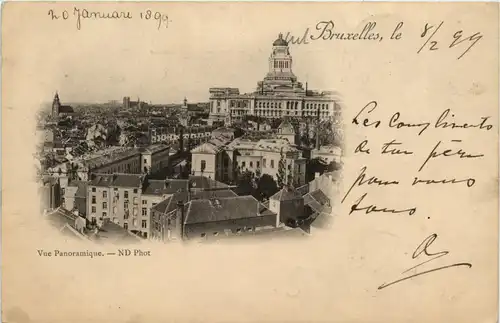 20 Januari 1899
Bruxelles, le 8/2 99
Les Compliments
de ton père
pour vous
tous
Vue Panoramique. — ND Phot